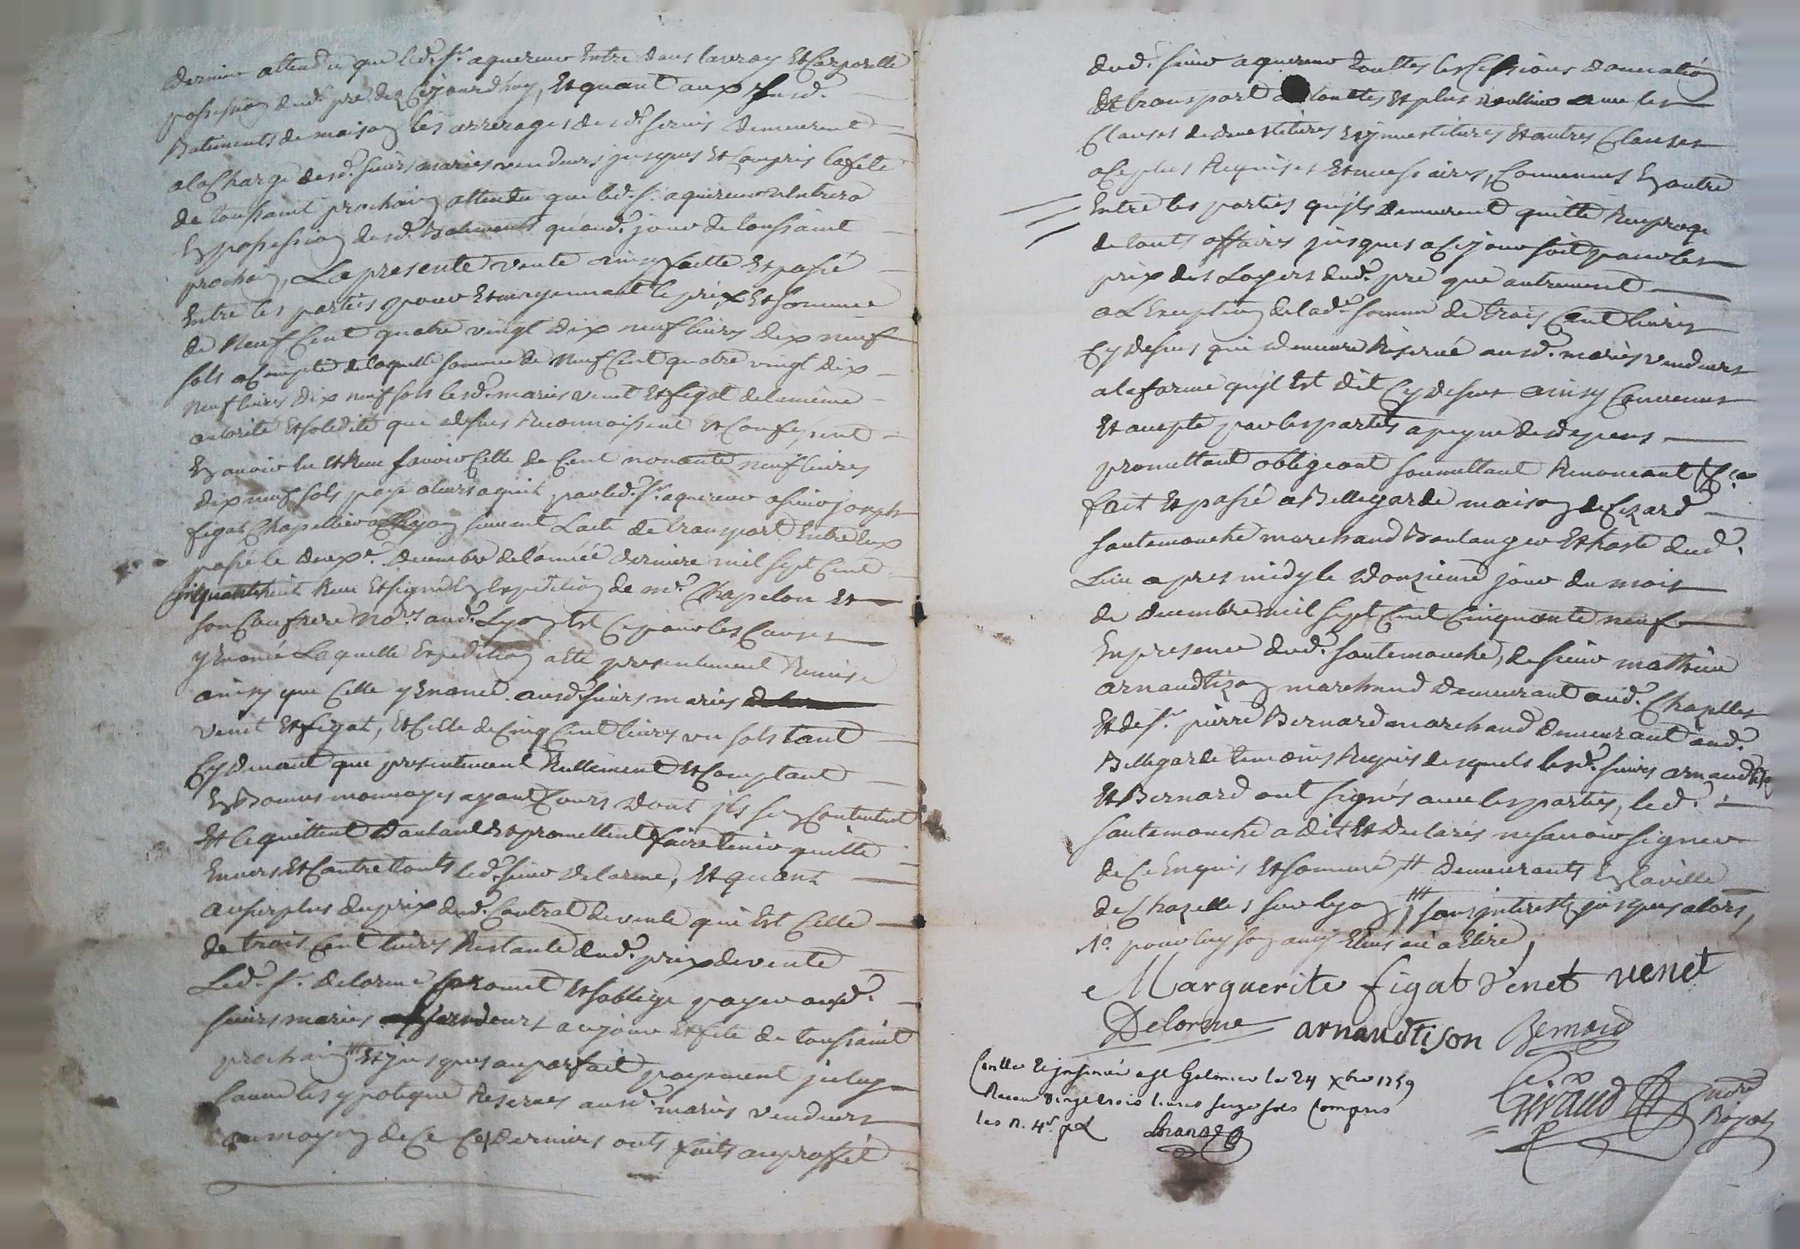 dernier attendu que led. Sr. aquereur Entre dans la vray Et Corporelle
possession dud. pré dez Cejourd'huy, Et quant aux susd.
Batiments de maison les arrerages desd. servis demeurent
ala Charge desd. sieurs mariés vendeurs jusques Et Compris la fete
de toussaint prochain attendu que led. Sr. aquereur n'entrera
En possession desd. Batiments qu'aud. jour de toussaint
prochain, La presente vente ainsy faitte Et passé
Entre les parties pour Et moyennant le prix Et somme
de Neuf Cent quatre vingt dix neuf livres dix neuf
sols a Compte de laquelle somme de Neuf Cent quatre vingt dix
neuf livres dix neuf sols lesd. mariés venet Et figat de la même
autorité Et solidité que dessus Reconnoissent Et Confessent
En avoir eu Et Reçu savoir Celle de Cent nonante neuf livres
dix neuf sols payé a leurs aquit par led. Sr. aquereur a sieur joseph
figat Chapellier a Lyon suivant L'acte de transport Entre Eux
passé le deuxe. decembre de l'année derniere mil sept Cent
Cinquante huit Reçu Et signé En Expedition de me. Chapelon Et
son Confrere Nores. aud. Lyon Et Ce pour les Causes
y Enoncé Laquelle Expedition a Eté presentement Remise
ainsy que Celle y Enoncé ausd. sieurs mariés
venet Et figat, Et Celle de Cinq Cent livres vu sols tant
Cy devant que presentement Reellement Et Comptant
En Bonnes monnoyes ayant Cours dont ils se Contentent
Et le quittent d'autant Et promettent faire tenir quitte
Envers Et Contre touts led. sieur delorme, Et quant
au surplus du prix dud. Contrat de vente qui Est Celle
de trois Cent livres Restante dud. prix de vente
Led. Sr. delorme promet Et s'oblige payer ausd.
sieurs mariés vendeurs au jour Et fete de toussaint
prochain # Et jusques au parfait payement
l'ypoteque Reservés ausd. mariés vendeurs
au moyen de Ce Ces derniers onts faits au proffit
dud. sieur aquereur touttes les Cessions donnation
Et transport touttes Et plus valleur avec les
Clauses de devestitures Et investitures Et autres Clauses
a Ce plus Requises Et necessaires, Convenues En outre
Entre les parties qu'ils demeurent quitte Reciproque
de touts affaires jusques a Ce jour soit pour les
prix des Loyers dud. pré que autrement
a L'Exception de lad. somme de trois Cent livres
Cy dessus qui demeure Reservé ausd. mariés vendeurs
a la forme qu'il Est dit Cy dessus ainsy Convenues
Et accepté par les parties a peyne de depens
promettant obligeant soumettant Renonceant
fait Et passé a Bellegarde maison de Cezard
santemouche marchand Boulanger Et hoste dud.
Lieu apres midy le douzieme jour du mois
de decembre mil sept Cent Cinquante neuf
En presence dud. santemouche, de sieur mathieu
arnaudtizon marchand demeurant aud. Chazelles
Et de Sr. pierre Bernard marchand demeurant aud.
Bellegarde temoins Requis desquels lesd. sieurs arnaudtizon
Et Bernard ont signés avec les parties, led.
santemouche a dit Et declarés ne savoir signer
de Ce Enquis Et sommé, # demeurants En la ville
de Chazelles sur Lyon ### sans interest jusques alors,
pour luy son amy Eleus ou a Elire,
Marguerite figat venet venet
Delorme arnaudtison Bernard
Controllé Et insinué a St Galmier le 24 xbre 1759
Receu vingt trois livres seze sols Compris
les n. 4s. p L
Giraud nore Royal